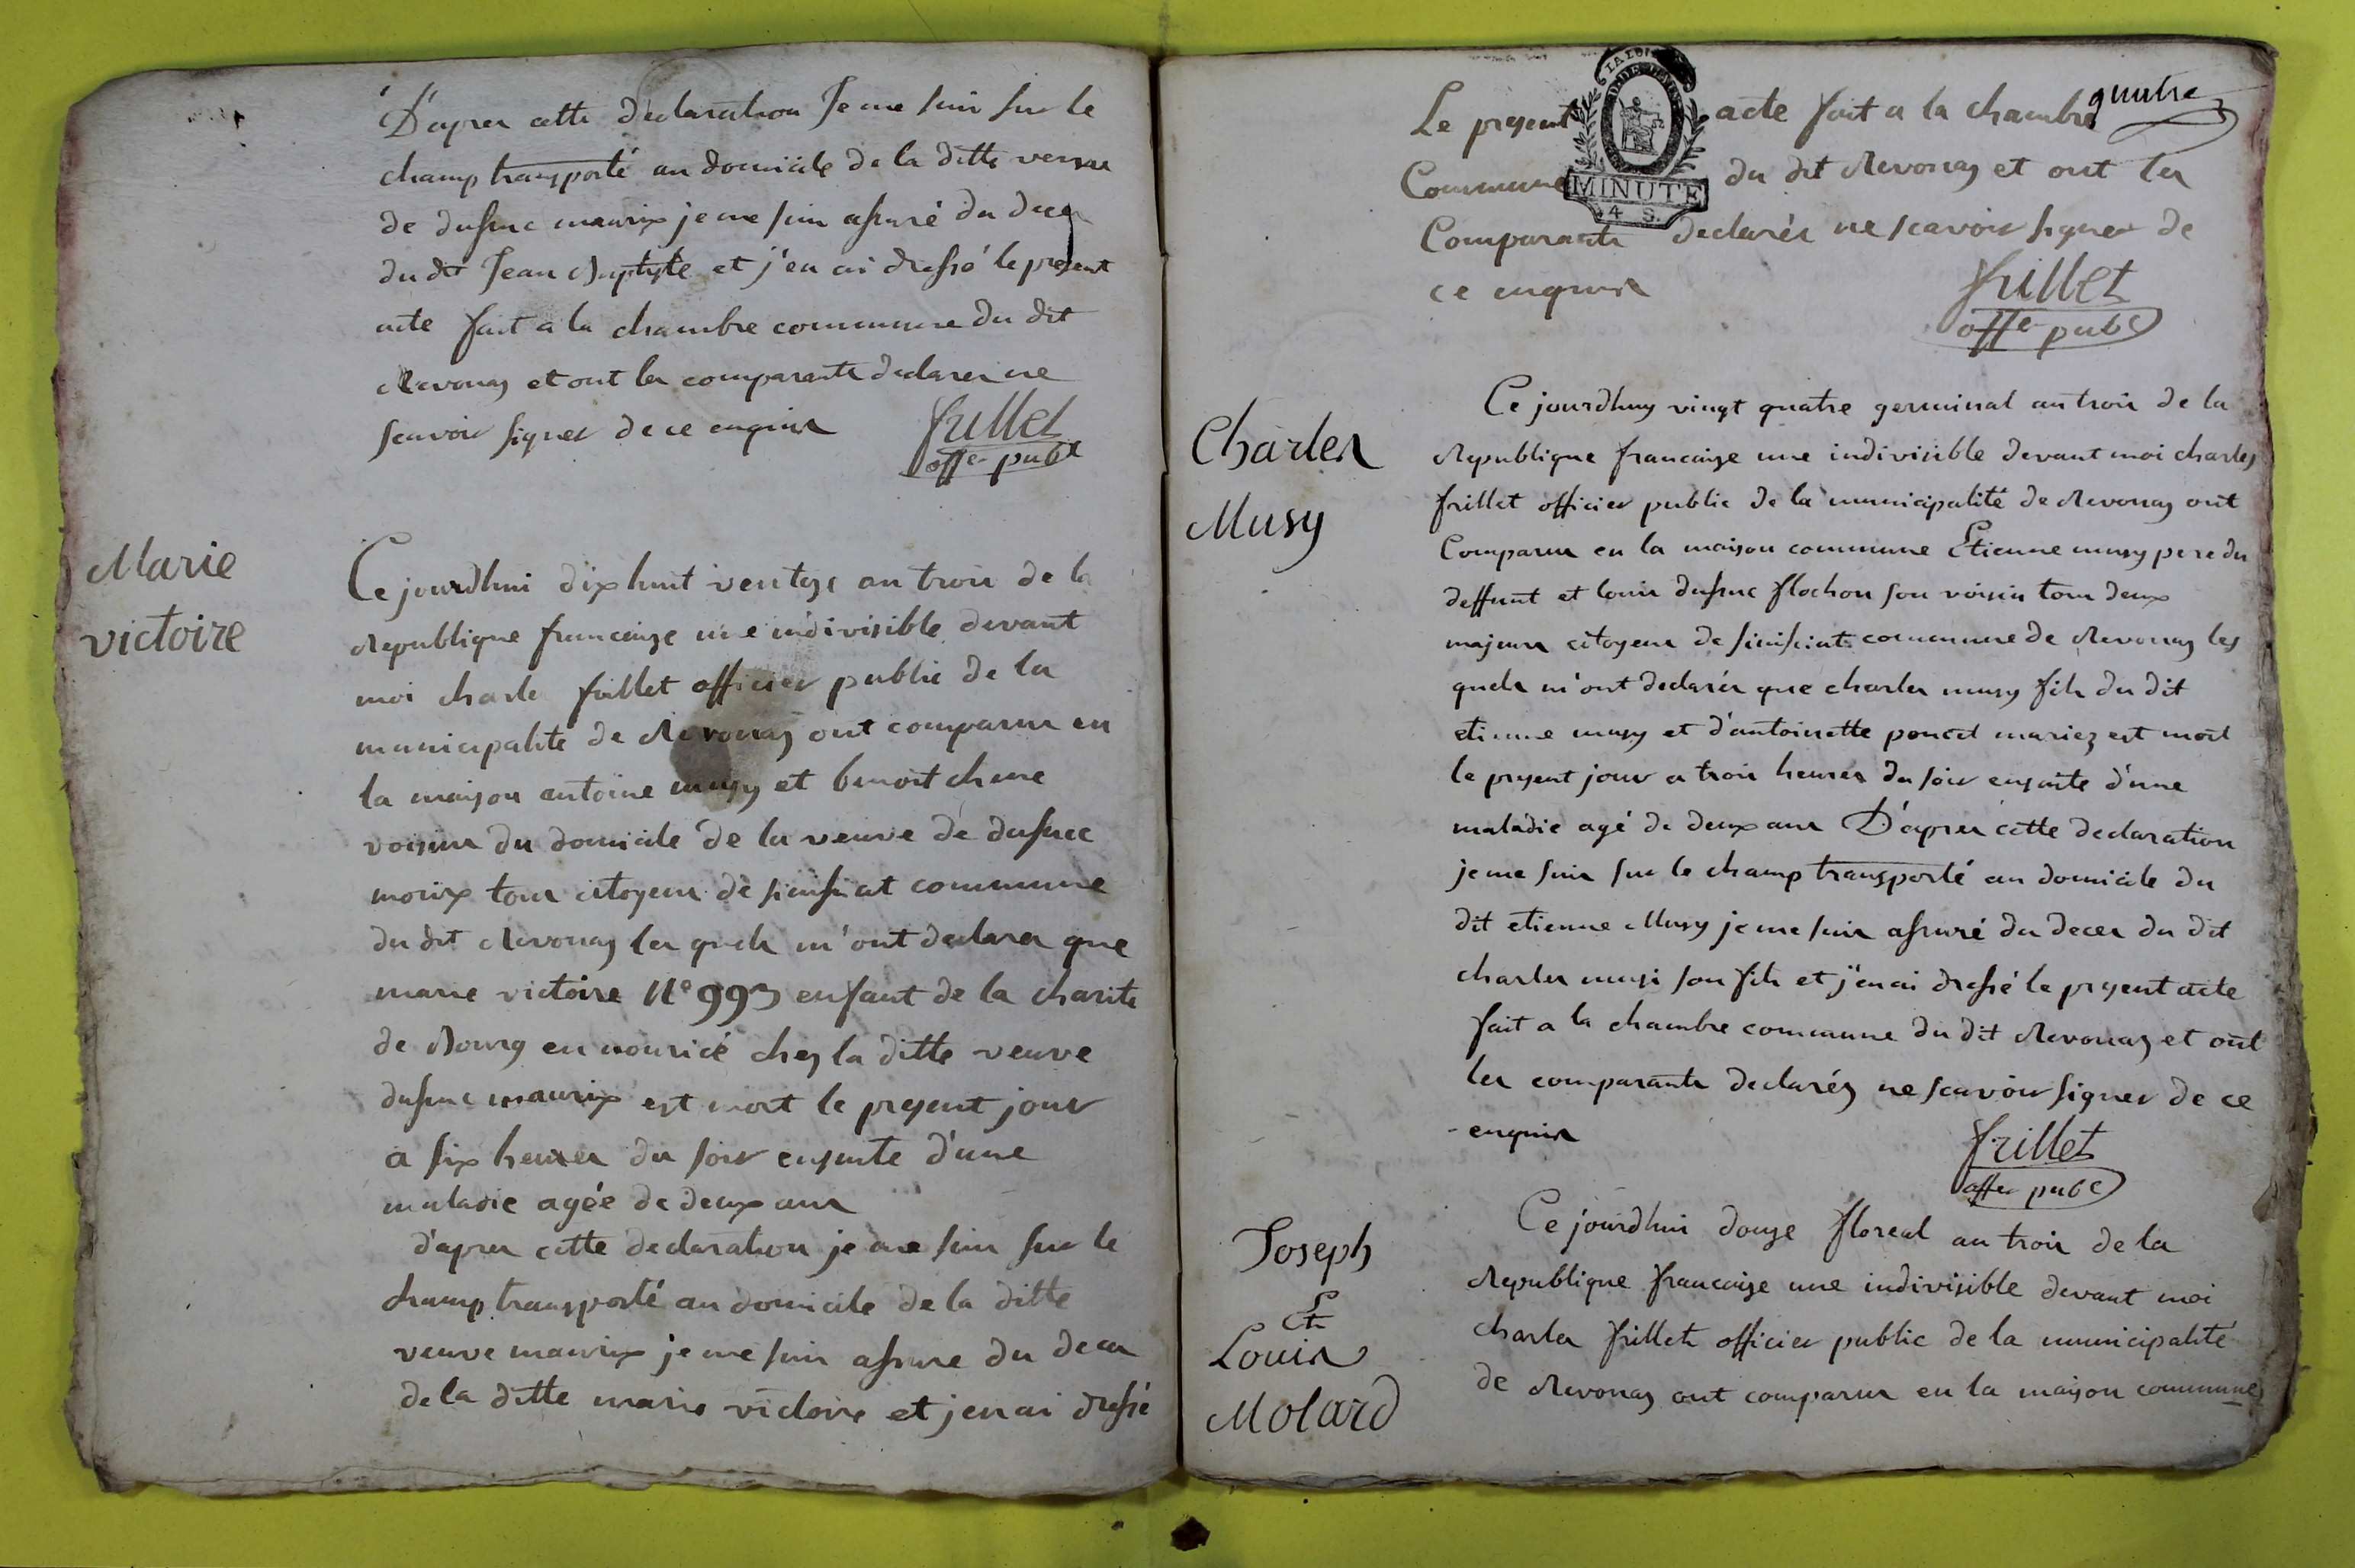 D'apres cette declaration Je me suis sur le
champ transporté au domicile de la ditte vesve
de dufour maurix je me suis assuré du deces
du dit Jean Baptiste et j'en ai dressé le present
acte fait a la chambre commune du dit
Revonas et ont les comparants declarer ne
scavoir signer de ce enquis
frillet
offer pube
Marie
victoire
Ce jourdhui dix huit ventose an trois de la
Republique francaize une indivisible devant
moi charle frillet officier public de la
municipalité de Revonas ont comparus en
la maison antoine musy et benoit chene
voisins du domicile de la veuve de
morix tous citoyens de commune
du dit Revonas les quels m'ont declarer que
marie victoire N° 993 enfant de la charite
de Bourg en nouricé chez la ditte veuve
maurix est mort le present jour
a six heures du soir ensuite d'une
maladie agée de deux ans
d'apres cette declaration je me suis sur le
champ transporté au domicile de la ditte
veuve maurix je me suis assure du deces
de la ditte marie victoire et jen ai dressé
quatre
Le present acte fait a la chambre
Commune du dit Revonas et ont les
Comparants declarés ne scavoir signer de
ce enquis
LA LOI
MINUTE
4 S.
frillet
offe pube
Charles
Musy
Ce jourdhuy vingt quatre germinal an trois de la
Republique francaize une indivisible devant moi charles
frillet officier public de la municipalité de Revonas ont
Comparus en la maison commune Etienne musy pere du
deffunt et louis flochon son voisin tous deux
majeurs citoyens de commune de Revonas les
quels m'ont declarés que charles musy fils du dit
etienne musy et d'antoinette poncet mariez est mort
le present jour a trois heures du soir ensuite d'une
maladie agé de deux ans D'apres cette declaration
je me suis sur le champ transporté au domicile du
dit etienne Musy je me suis assuré du deces du dit
charles musi son fils et j'en ai dressé le present acte
fait a la chambre commune du dit Revonas et ont
les comparants declaréz ne scavoir signer de ce
enquis
frillet
offer pube
Joseph
Et
Louis
Molard
Ce jourdhui douze floreal an trois de la
Republique francaize une indivisible devant moi
charles frillet officier public de la municipalité
de Revonas ont comparus en la maison commune